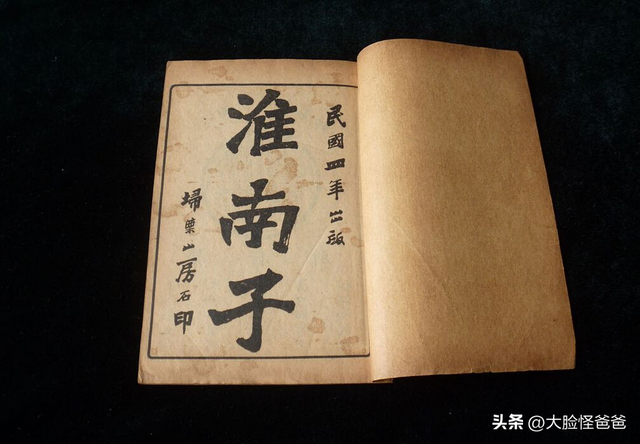 民國四年出版
淮南子
埽葉山房石印
头条 @大脸怪爸爸